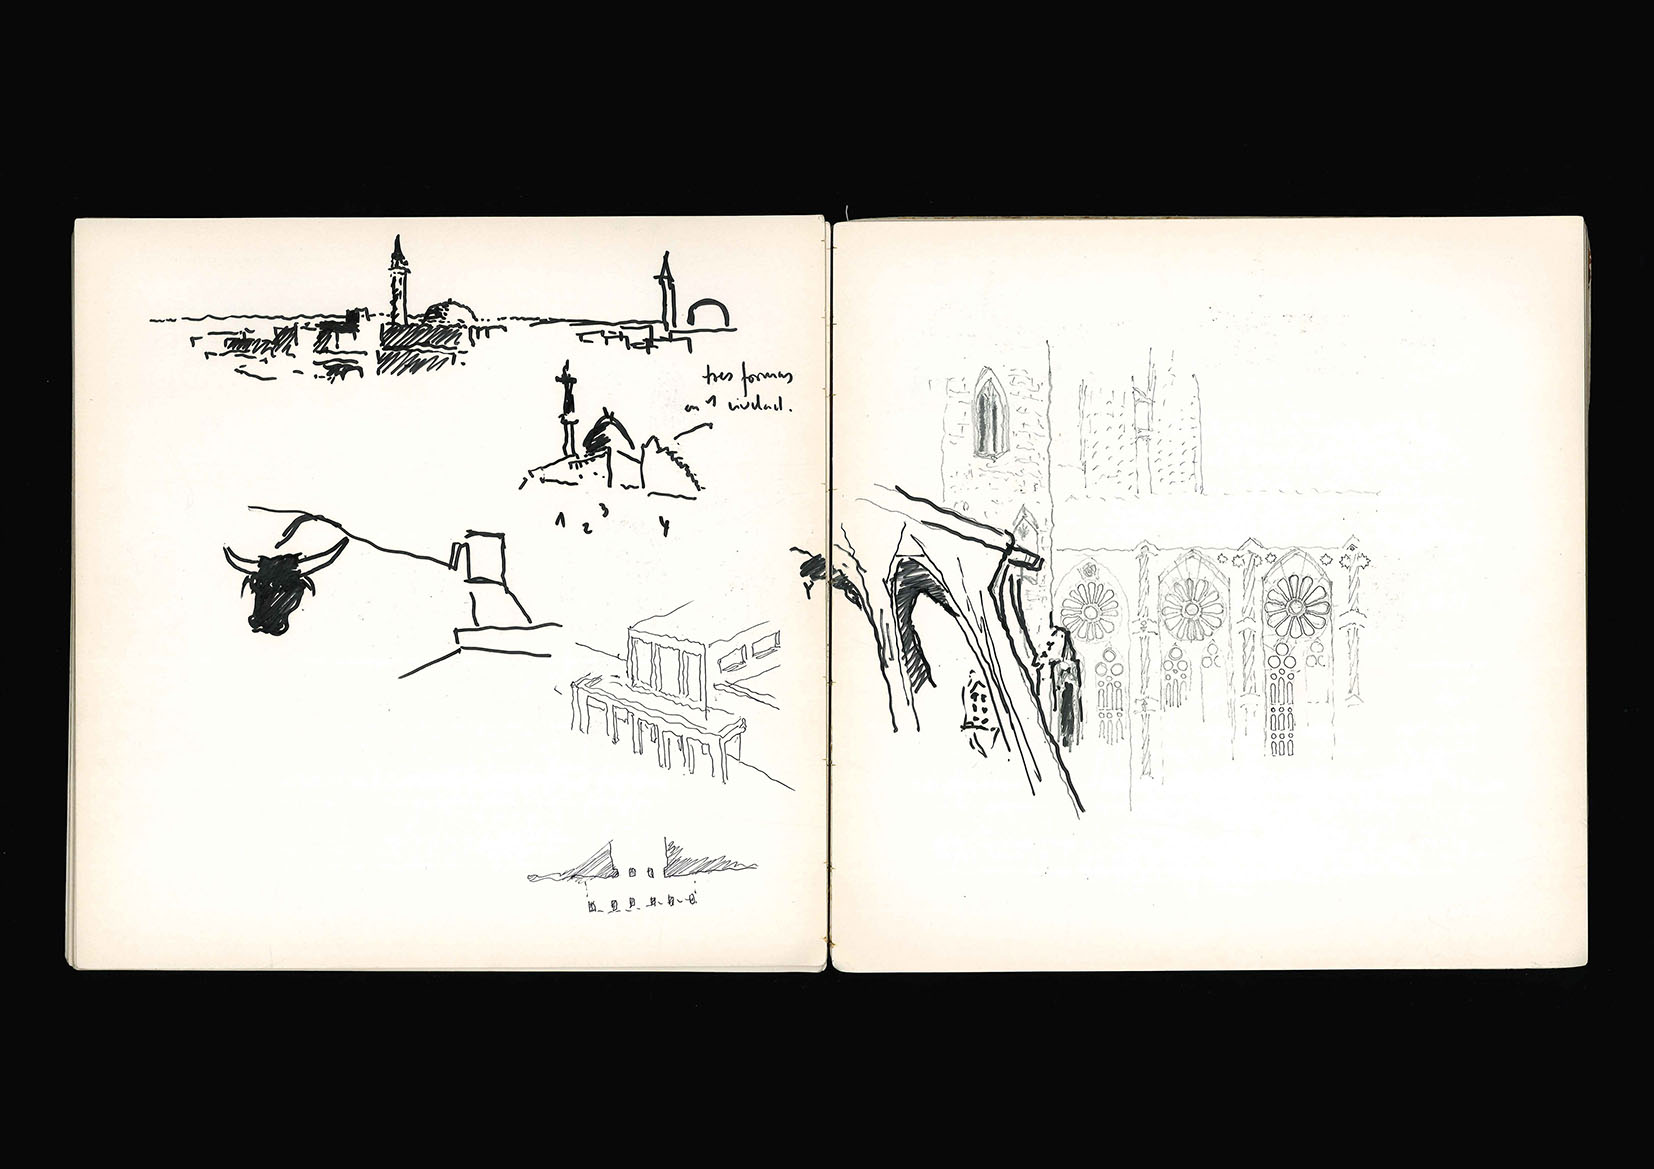 tres formas
en 1 ciudad.
1 2 3 4